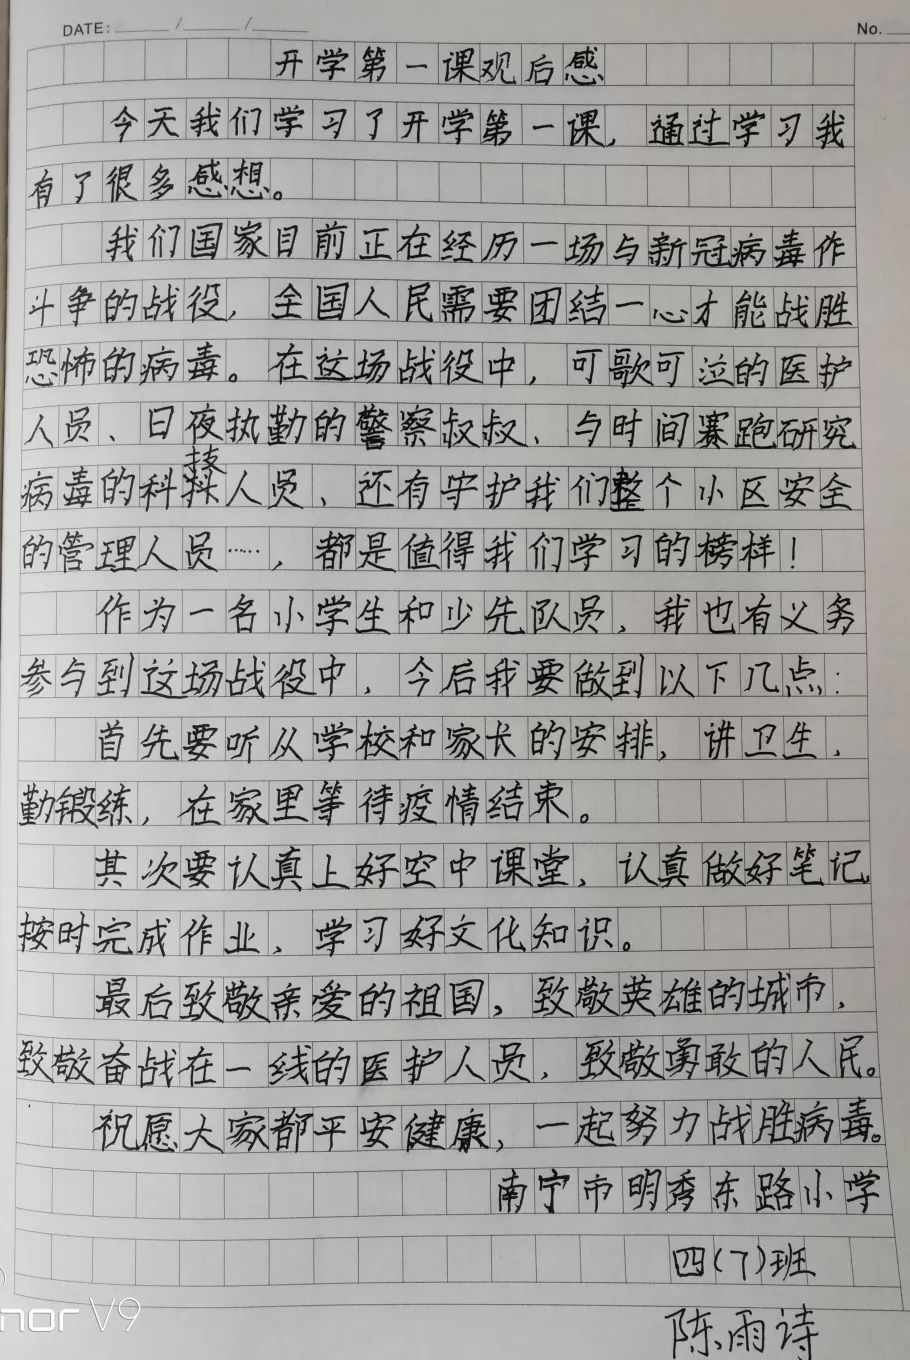 DATE: ____/____/____
No.
开学第一课观后感
今天我们学习了开学第一课，通过学习我
有了很多感想。
我们国家目前正在经历一场与新冠病毒作
斗争的战役，全国人民需要团结一心才能战胜
恐怖的病毒。在这场战役中，可歌可泣的医护
人员、日夜执勤的警察叔叔、与时间赛跑研究
病毒的科技人员、还有守护我们整个小区安全
的管理人员……，都是值得我们学习的榜样！
作为一名小学生和少先队员，我也有义务
参与到这场战役中，今后我要做到以下几点：
首先要听从学校和家长的安排，讲卫生，
勤锻练，在家里等待疫情结束。
其次要认真上好空中课堂，认真做好笔记，
按时完成作业，学习好文化知识。
最后致敬亲爱的祖国，致敬英雄的城市，
致敬奋战在一线的医护人员，致敬勇敢的人民。
祝愿大家都平安健康，一起努力战胜病毒。
南宁市明秀东路小学
四(7)班
陈雨诗
nor V9